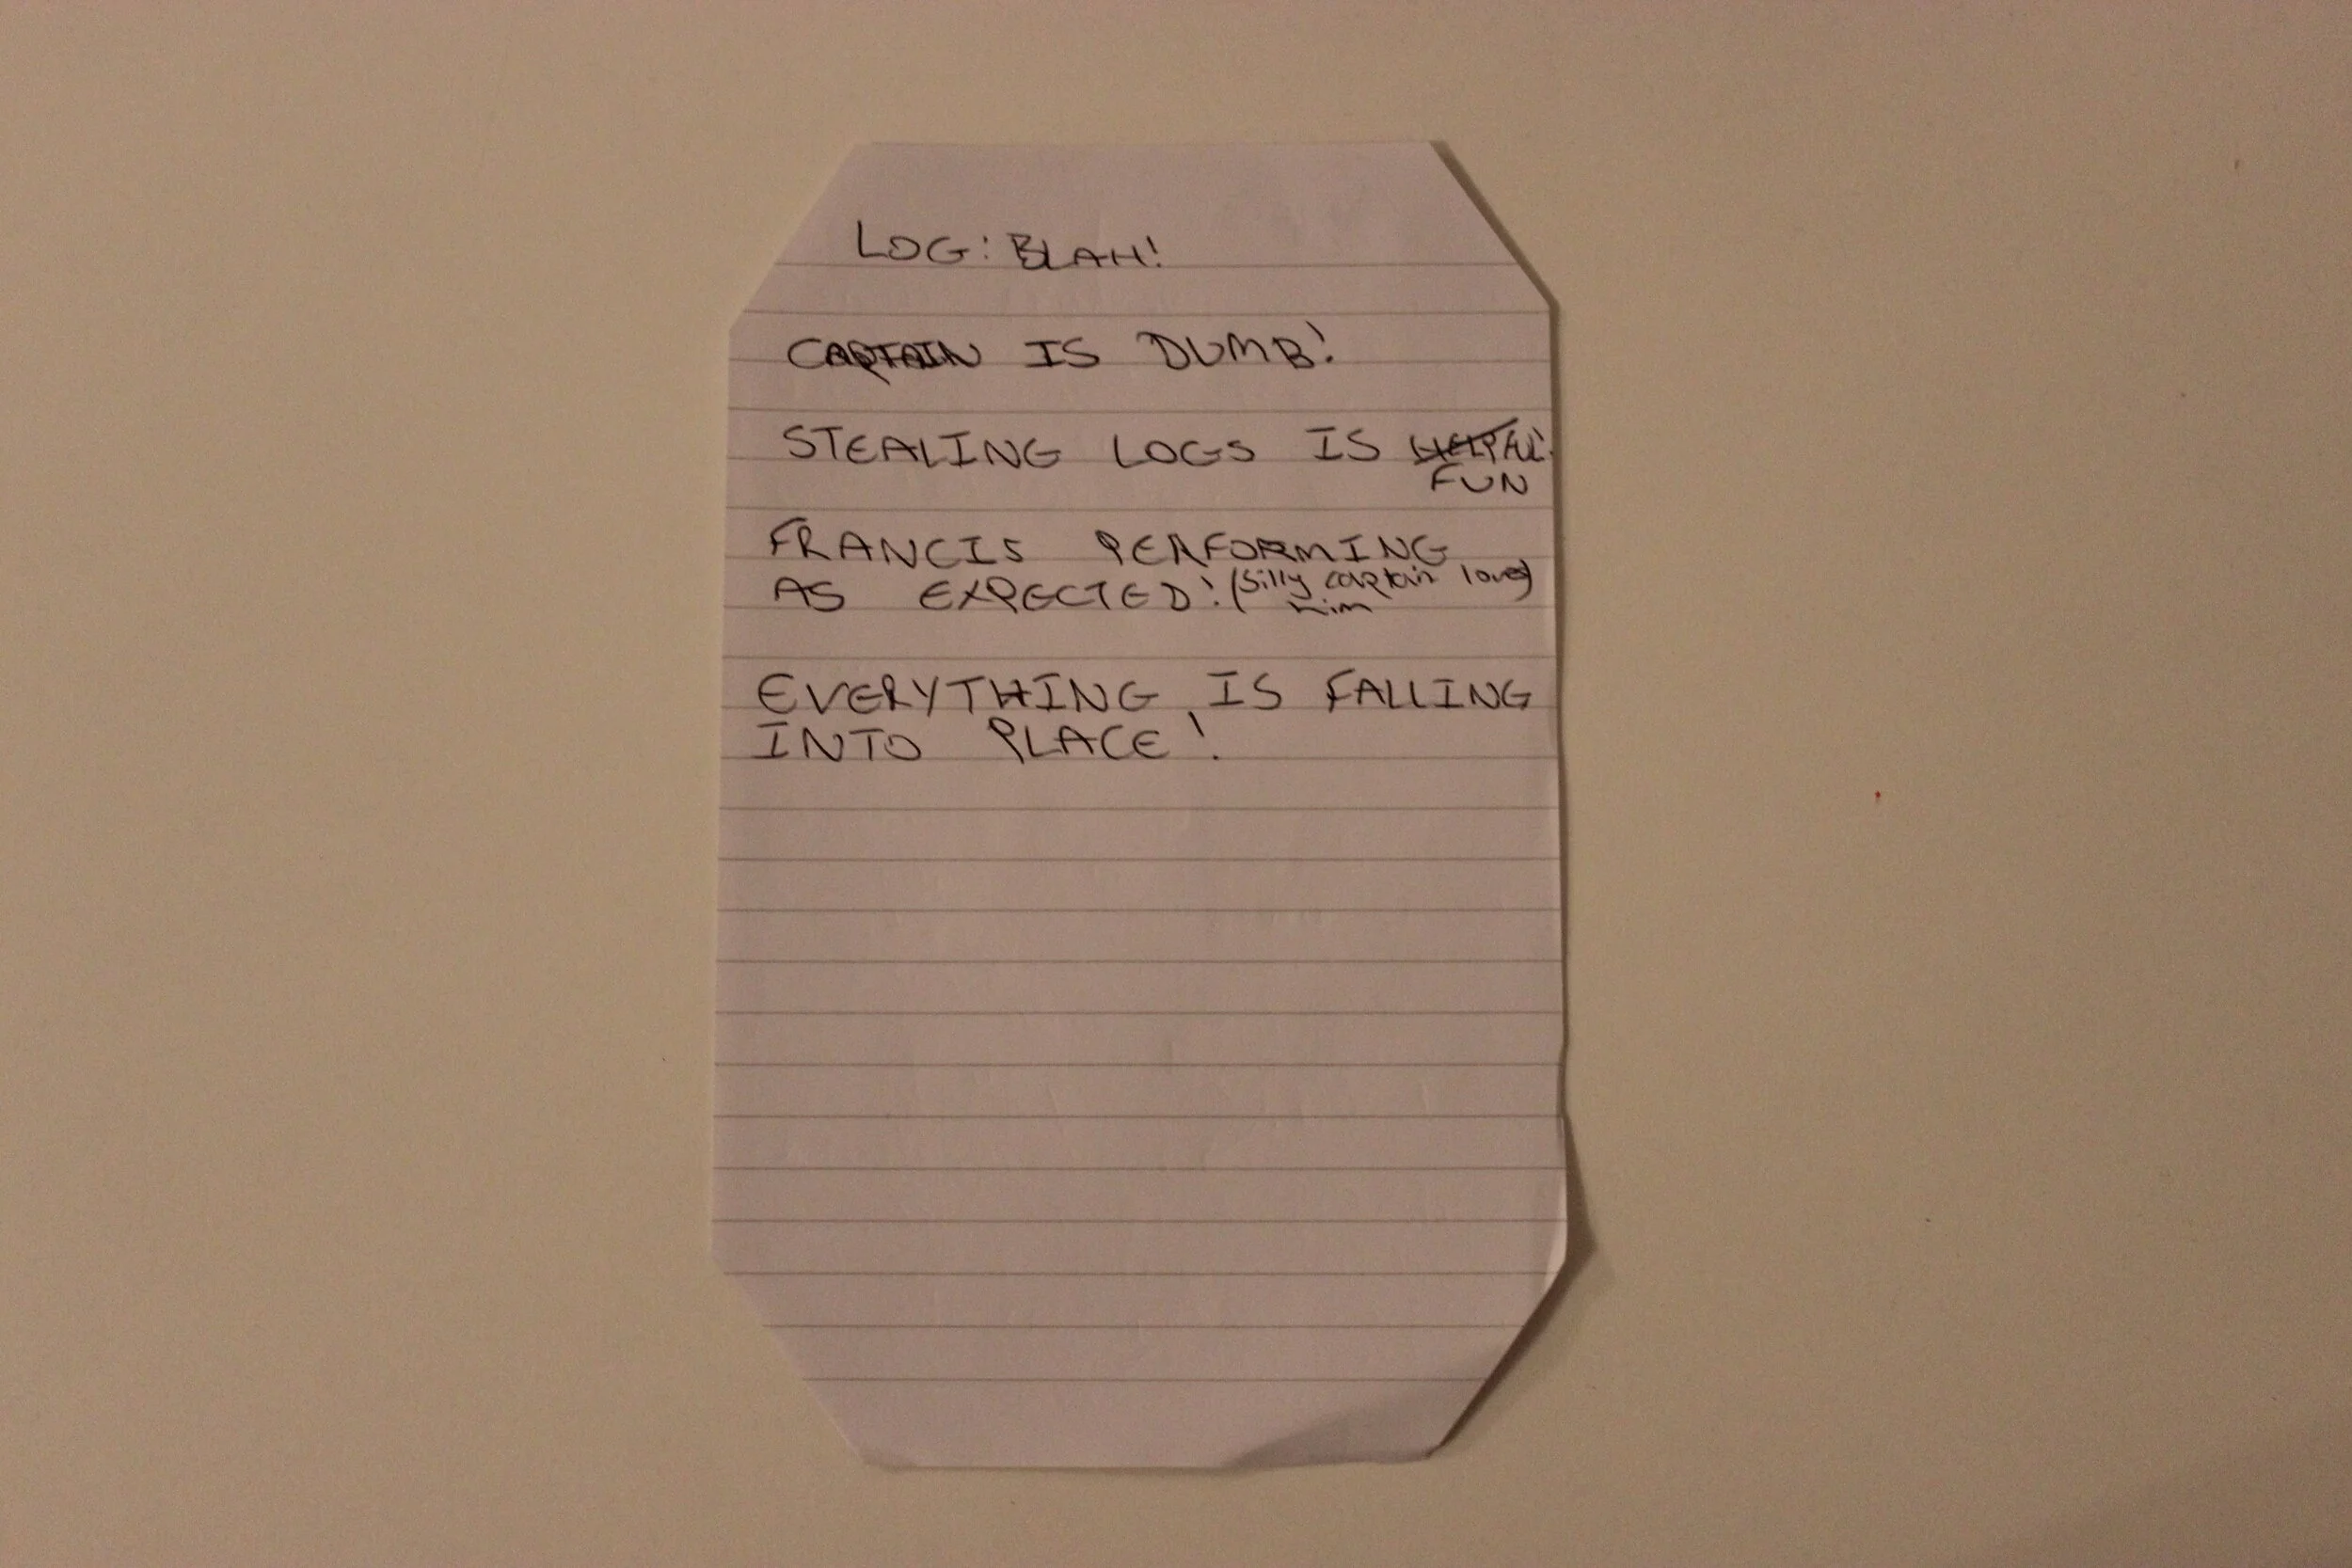 LOG: BLAH!
CAPTAIN IS DUMB!
STEALING LOGS IS HELPFUL!
FUN
FRANCIS PERFORMING
AS EXPECTED! (Silly captain loves
him)
EVERYTHING IS FALLING
INTO PLACE!